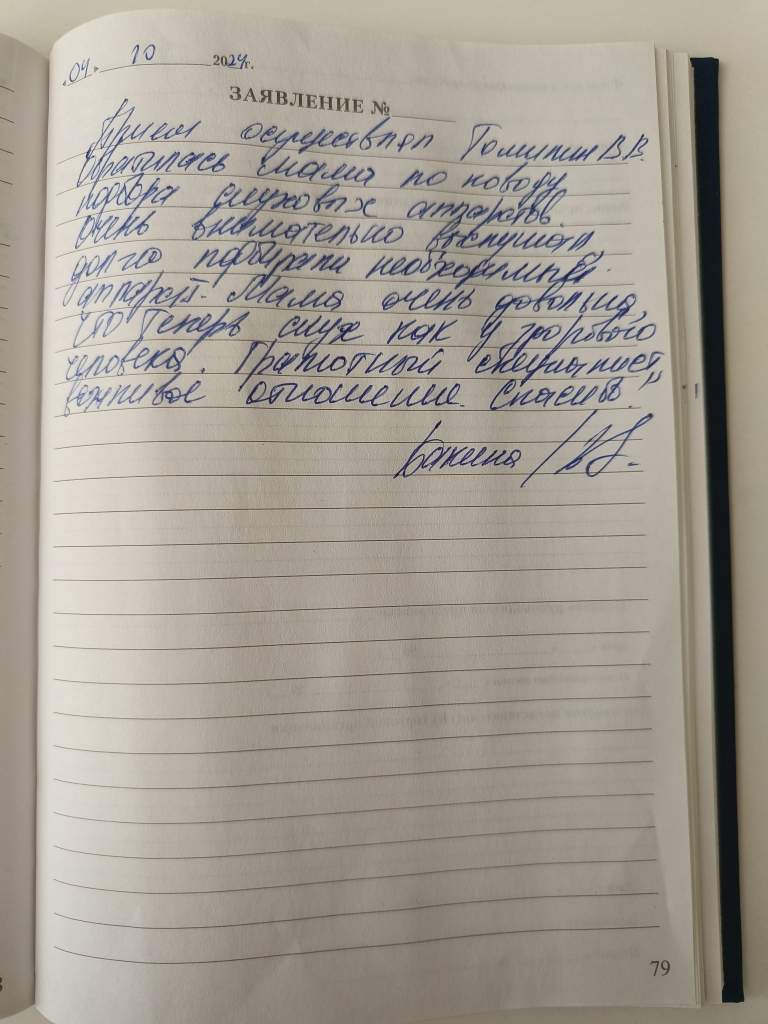 «04» 10 2024г.
ЗАЯВЛЕНИЕ №
Прием осуществлял Томилин В.В.
Обратилась мама по поводу
подбора слуховых аппаратов.
Очень внимательно выслушал,
долго подбирали необходимый
аппарат. Мама очень довольна,
что теперь слух как у здорового
человека. Грамотный специалист,
вежливое отношение. Спасибо!"
Бакина
79